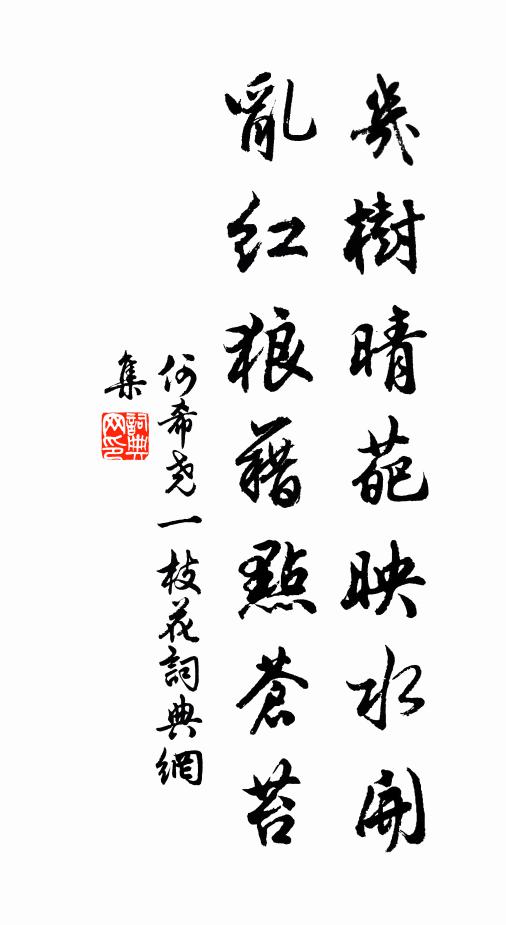 幾樹晴葩映水開
亂紅狼藉點蒼苔
何希尧一枝花詞典網
集
詞典网印